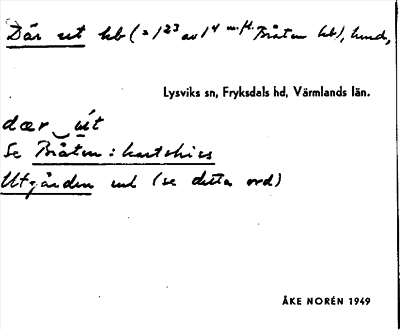 Där ut hb (= 1²³ av 1⁴ m.fl. Bråten hb), hmd,
Lysviks sn, Fryksdals hd, Värmlands län.
dær út
Se Bråten :
Utgården enl (se detta ord)
ÅKE NORÉN 1949